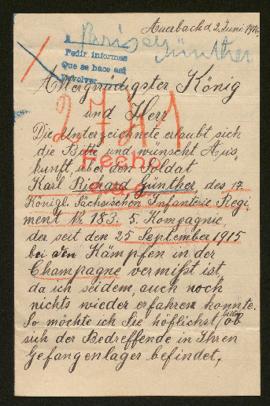 Auerbach d 2 Juni 1916.
A Berlin
Günther
Pedir informes
Que se hace así
Devolver
Allergnädigster König
und Herr
Die Unterzeichnete erlaubt sich
die Bitte und wünscht Aus,
kunft, über den Soldat
Fecho
Karl Richard Günther, des
Königl. Sächsischen Infanterie Regi
ment No 183. 5. Kompagnie
der seit den 25 September 1915
bei den Kämpfen in der
Champagne vermißt ist,
da ich seidem, auch noch
nichts wieder erfahren konnte.
So möchte ich Sie höflichst bitten ob
sich der Betreffende in Ihren
Gefangenlager befindet,